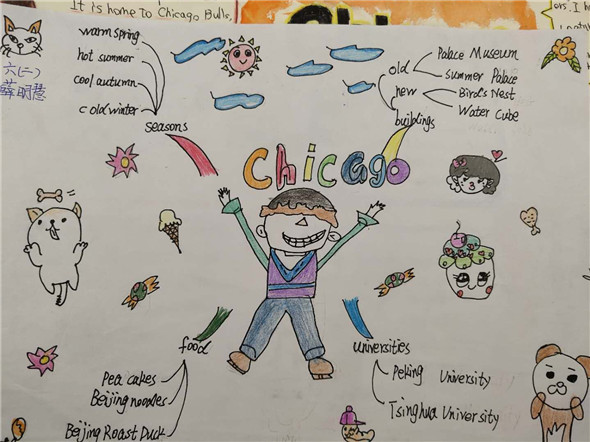 It is home to Chicago Bulls,
warm spring
hot summer
cool autumn
cold winter
seasons
六(一)
薛明慧
old
Palace Museum
summer Palace
new
Bird's Nest
Water Cube
buildings
Chicago
food
Pea cakes
Beijing noodles
Beijing Roast Duck
universities
Peking University
Tsinghua University